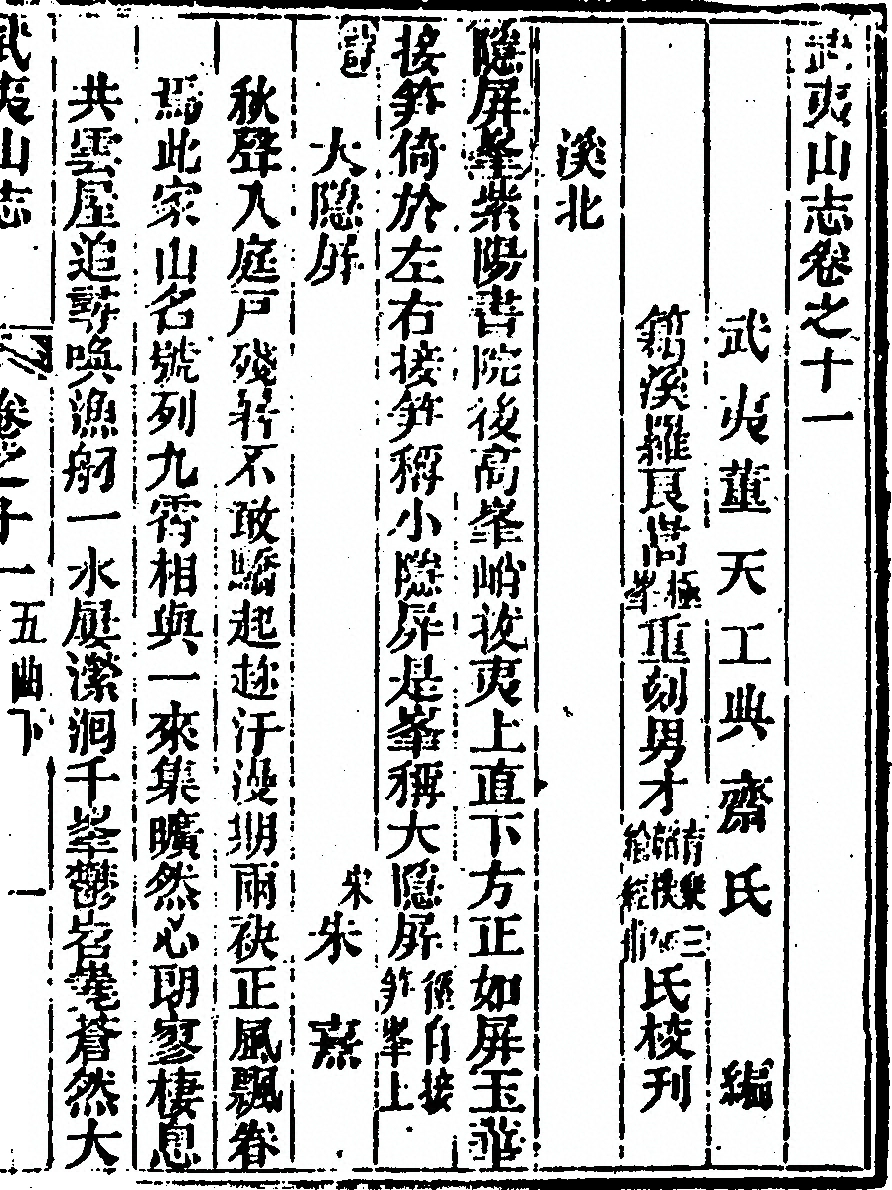 武夷山志卷之十一
武夷董天工典齋氏　編
籍溪羅良嵩重刻男才三氏校刊
溪北
隱屏峯紫陽書院後高峯峭拔夷上直下方正如屏玉華
接笋倚於左右接笋稱小隱屏是峯稱大隱屏徑自接笋峯上
詩　大隱屏　宋朱熹
秋聲入庭戶殘暑不敢驕起趁汗漫期兩袂正風飄眷
焉此家山名號列九霄相與一來集曠然心朗寥棲息
共雲屋追尋喚漁舠一水屢瀠洄千峯鬱岧嶢蒼然大
武夷山志　卷之十一　五曲下　一